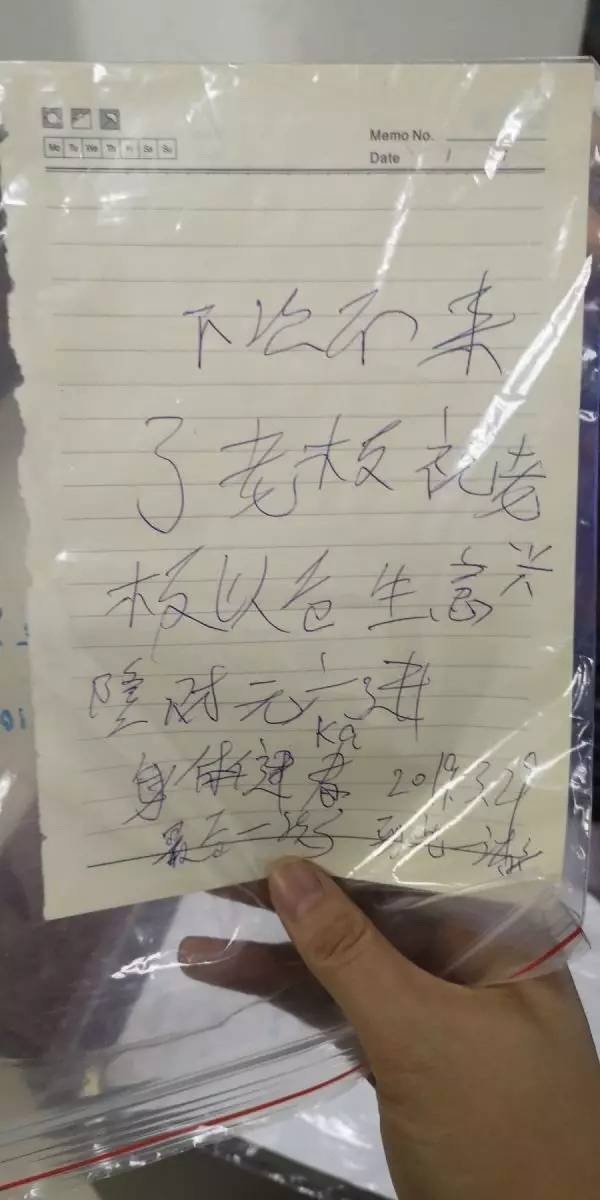 Memo No.
Mo Tu We Th Fr Sa Su
Date / /
下次不来
了老板祝老
板以后生意兴
隆财元广进
Ka
身体建康 2019.3.29
最后一次